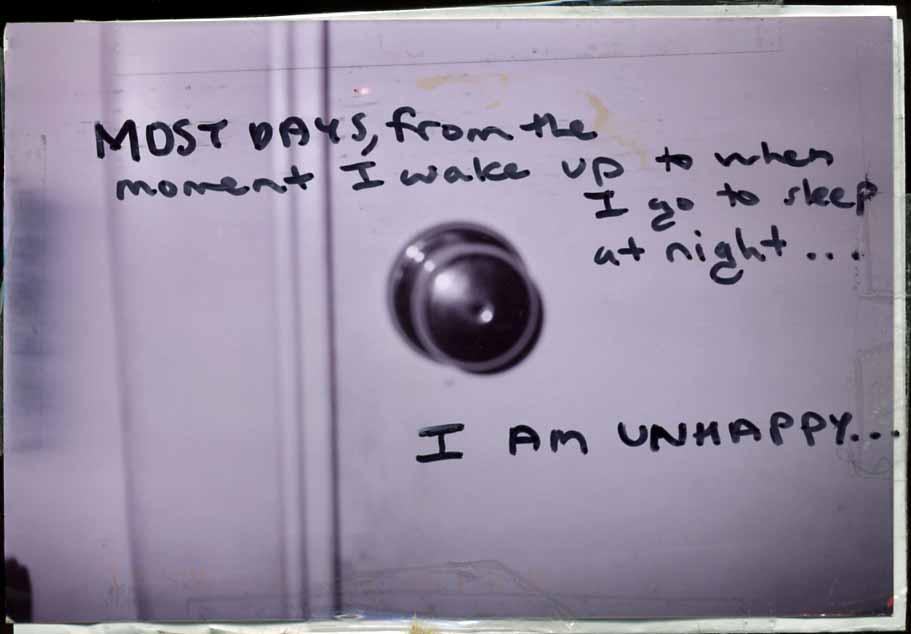 MOST DAYS, from the
moment I wake up to when
I go to sleep
at night...
I AM UNHAPPY...